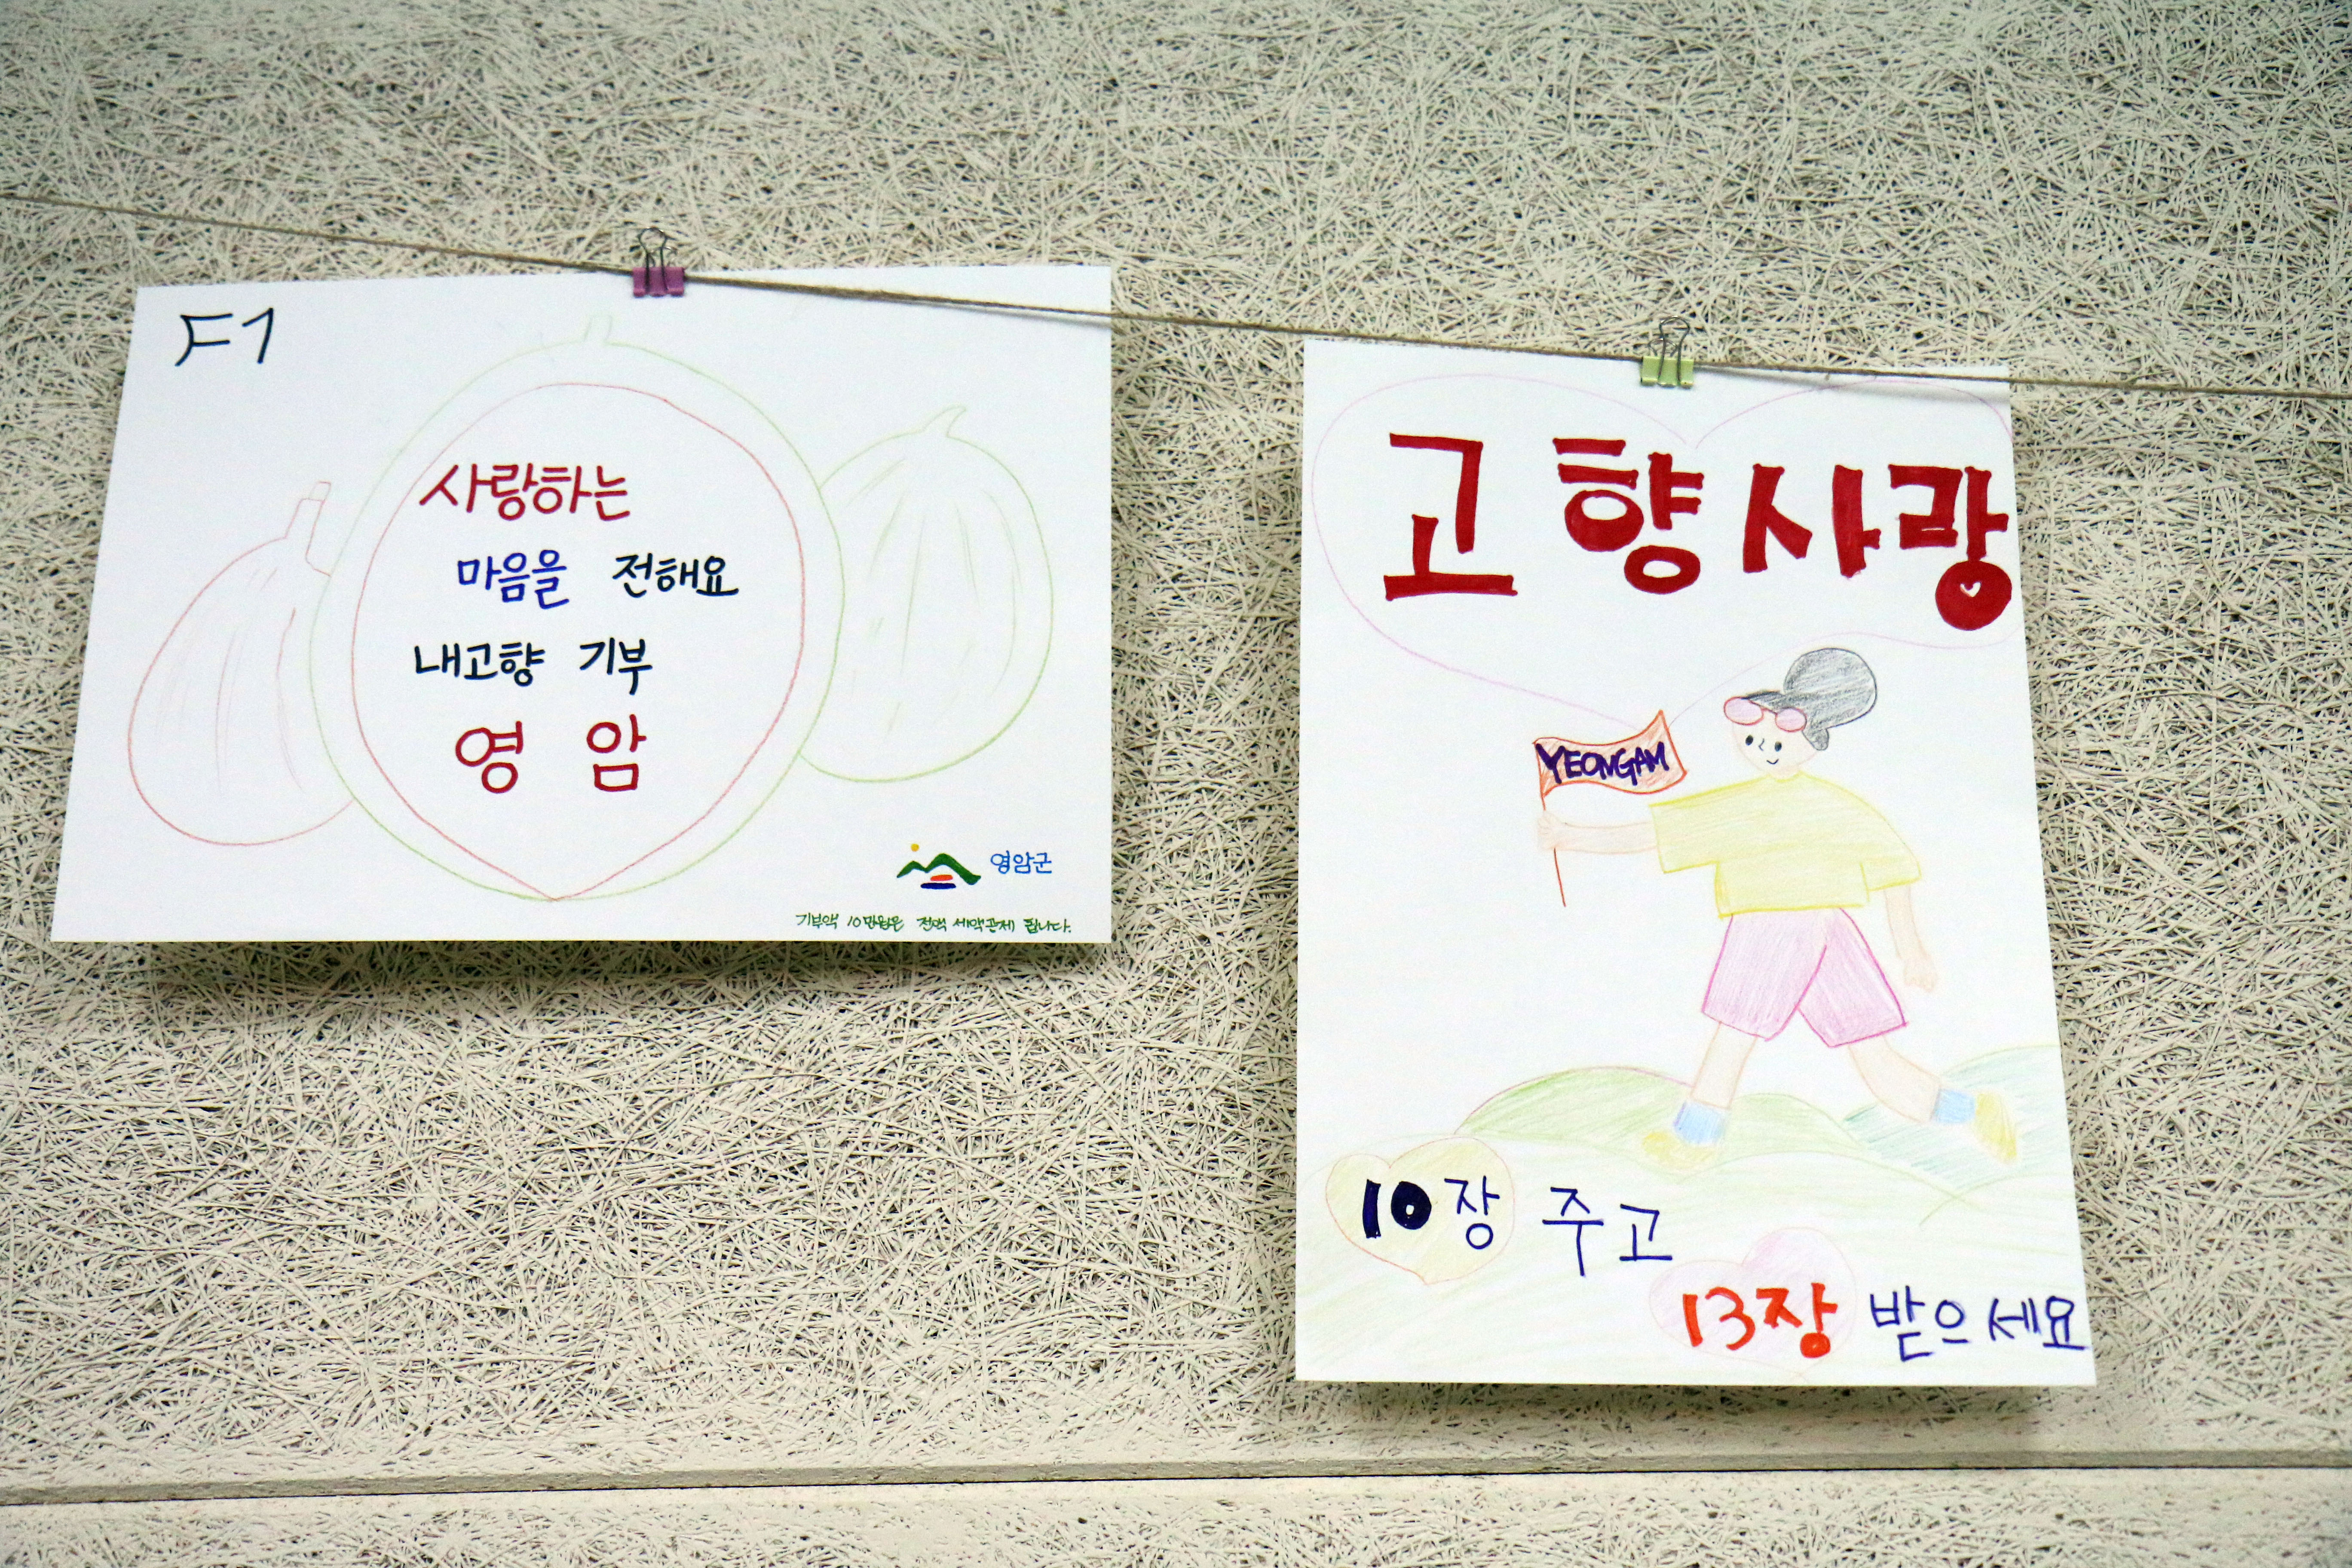 F1
사랑하는
마음을 전해요
내고향 기부
영암
영암군
기부액 10만원은 전액 세액공제 됩니다.
고향사랑
YEONGAM
10장 주고
13장 받으세요